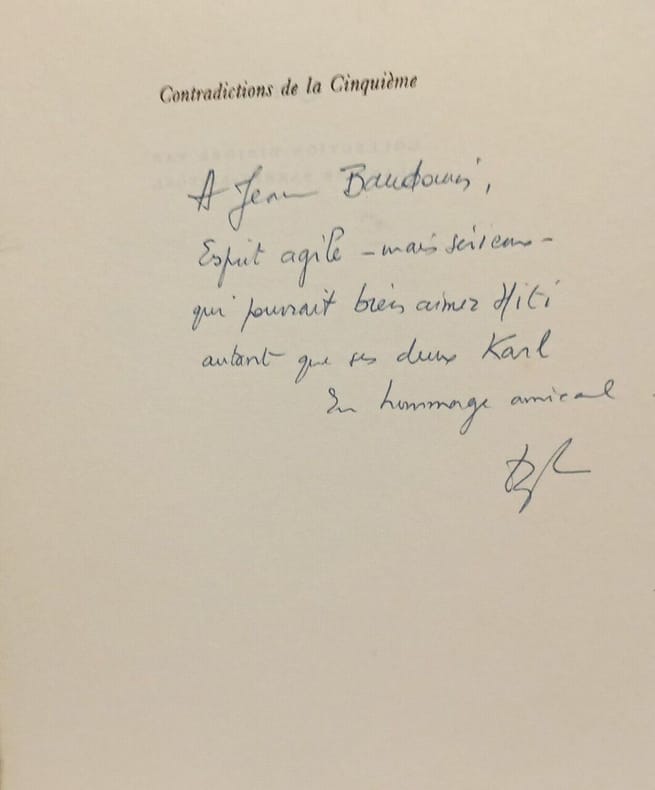 Contradictions de la Cinquième
A Jean Baudouin,
Esprit agile – mais sérieux –
qui pourrait bien aimer
autant que ses deux Karl
En hommage amical